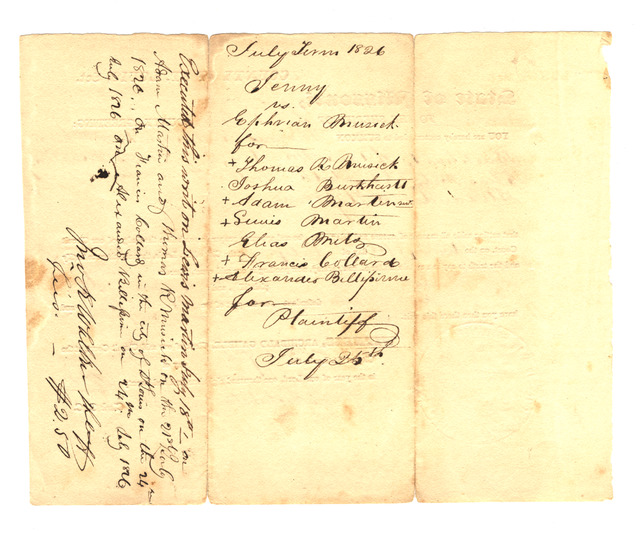 July Term 1826
Jenny
vs.
Ephriam Musick
for
+ Thomas R Musick
Joshua Burkhartt
+ Adam Martin
+ Lewis Martin
Elias
+ Francis Collard
+ Alexander Bellipime
for
Plaintiff
July 25th
Executed this writ on Lewis Martin July 18th on
Adam Martin and Thomas R Musick on the 21st July
1826, on Francis Collard in the city of St Louis on the 24
July 1826 and Alexander on 24 July 1826
Jno K Walker Shff
Fees - $2.50
State of Missouri